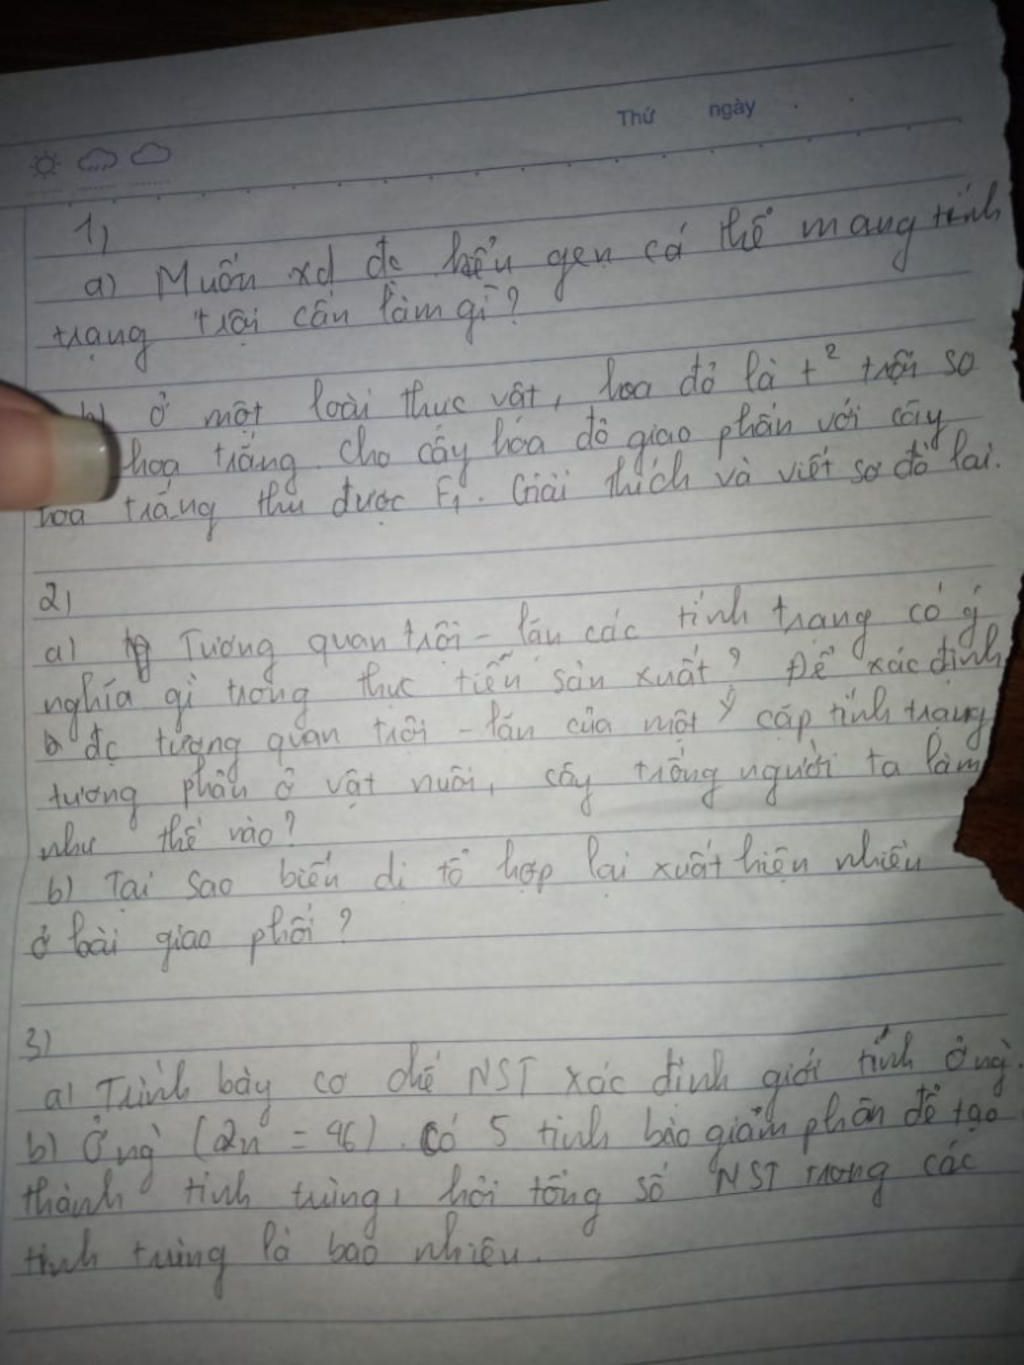 Thứ ngày
1)
a) Muốn xd đc kiểu gen cá thể mang tính
trạng trội cần làm gì?
b) ở một loài thực vật, hoa đỏ là t² trội so
hoa trắng. Cho cây hoa đỏ giao phấn với cây
hoa trắng thu được F1. Giải thích và viết sơ đồ lai.
2)
a) Tương quan trội - lặn các tính trạng có ý
nghĩa gì trong thực tiễn sản xuất? Để xác định
đc tương quan trội - lặn của một cặp tính trạng
tương phản ở vật nuôi, cây trồng người ta làm
như thế nào?
b) Tại sao biến dị tổ hợp lại xuất hiện nhiều
ở loài giao phối?
3)
a) Trình bày cơ chế NST xác định giới tính ở ng`.
b) Ở ng` (2n = 46). Có 5 tinh bào giảm phân để tạo
thành tinh trùng, hỏi tổng số NST trong các
tinh trùng là bao nhiêu.